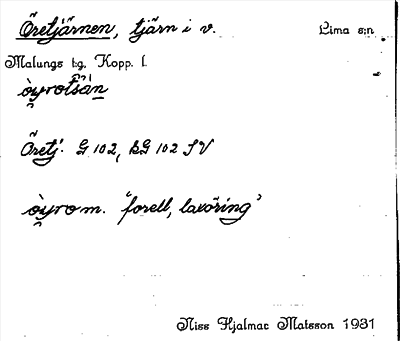 Öretjärnen, tjärn i v. Lima s:n
Malungs tg, Kopp. l.
òyrotšàn
Öretj. G 102, kG 102 SV
òyro m. "forell, laxöring"
Niss Hjalmar Matsson 1931